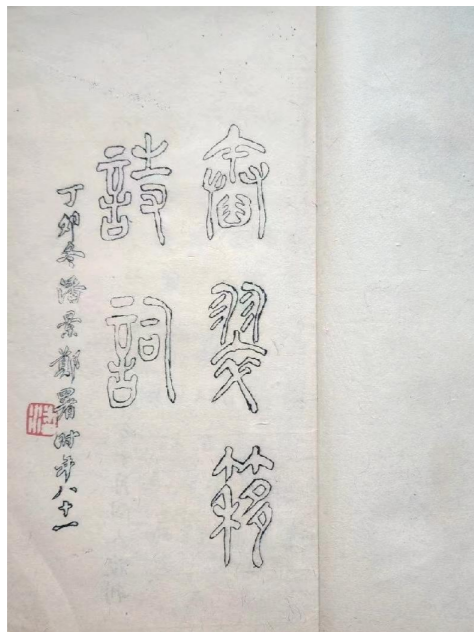 翠簃
詩詞
丁卯冬潘景鄭署时年八十一